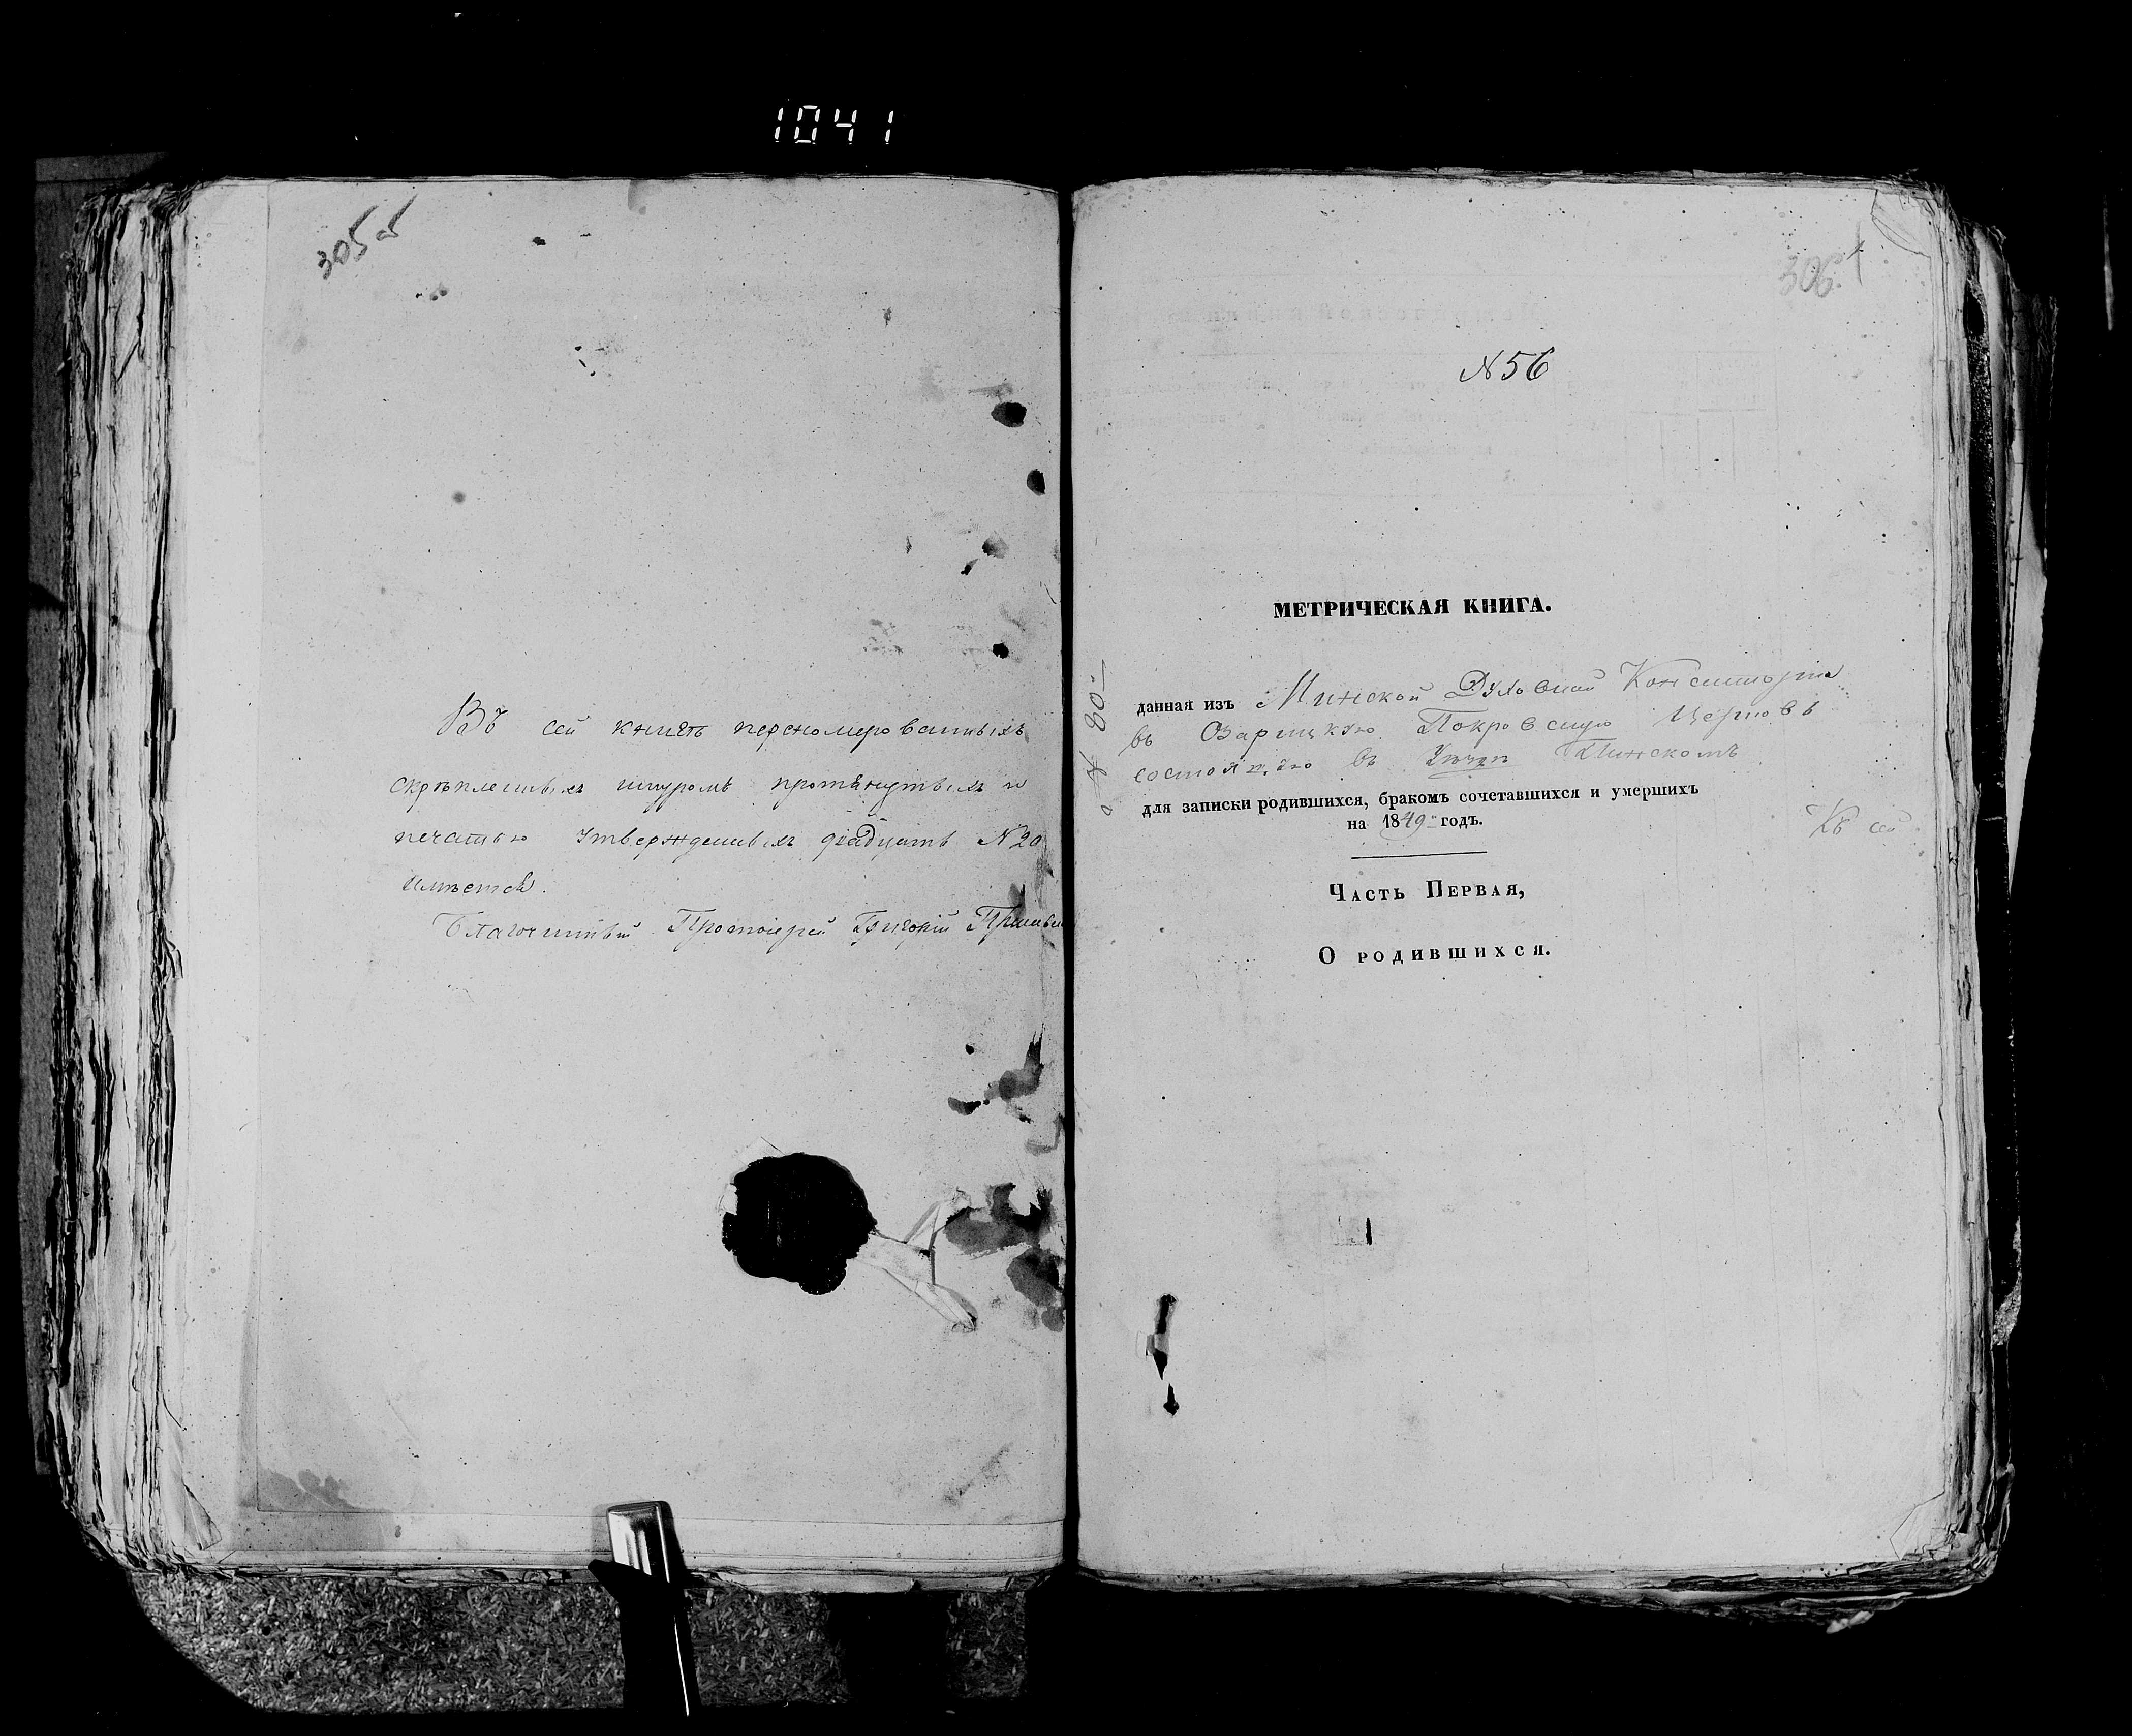 1041
305об
Въ сей книгѣ перономерованныхъ
скрѣпленныхъ шнуромъ протянутыхъ и
печатью утвержденныхъ двадцать N 20
имѣется.
Благочинный Протоіерей Григорій
306
N 56
МЕТРИЧЕСКАЯ КНИГА.
данная изъ Минской Духовной Консисторіи
въ Озарицкую Покровскую Церковь
состоящую въ Уѣздѣ Пинскомъ
для записки родившихся, бракомъ сочетавшихся и умершихъ
на 1849 годъ.
Къ сей
Часть Первая,
О родившихся.
N 80